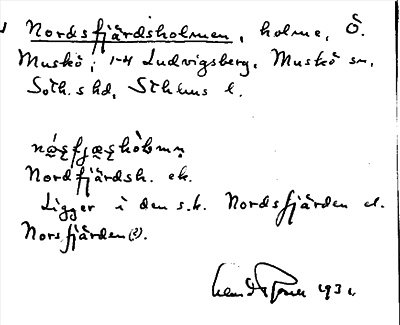 Nordsfjärdsholmen, holme, Ö.
Muskö; 1-4 Ludvigsberg, Muskö sn,
Soth. s hd, Sthlms l.
Nordfjärdsh. ek.
Ligger i den s.k. Nordsfjärden el.
Norsfjärden (?).
1931